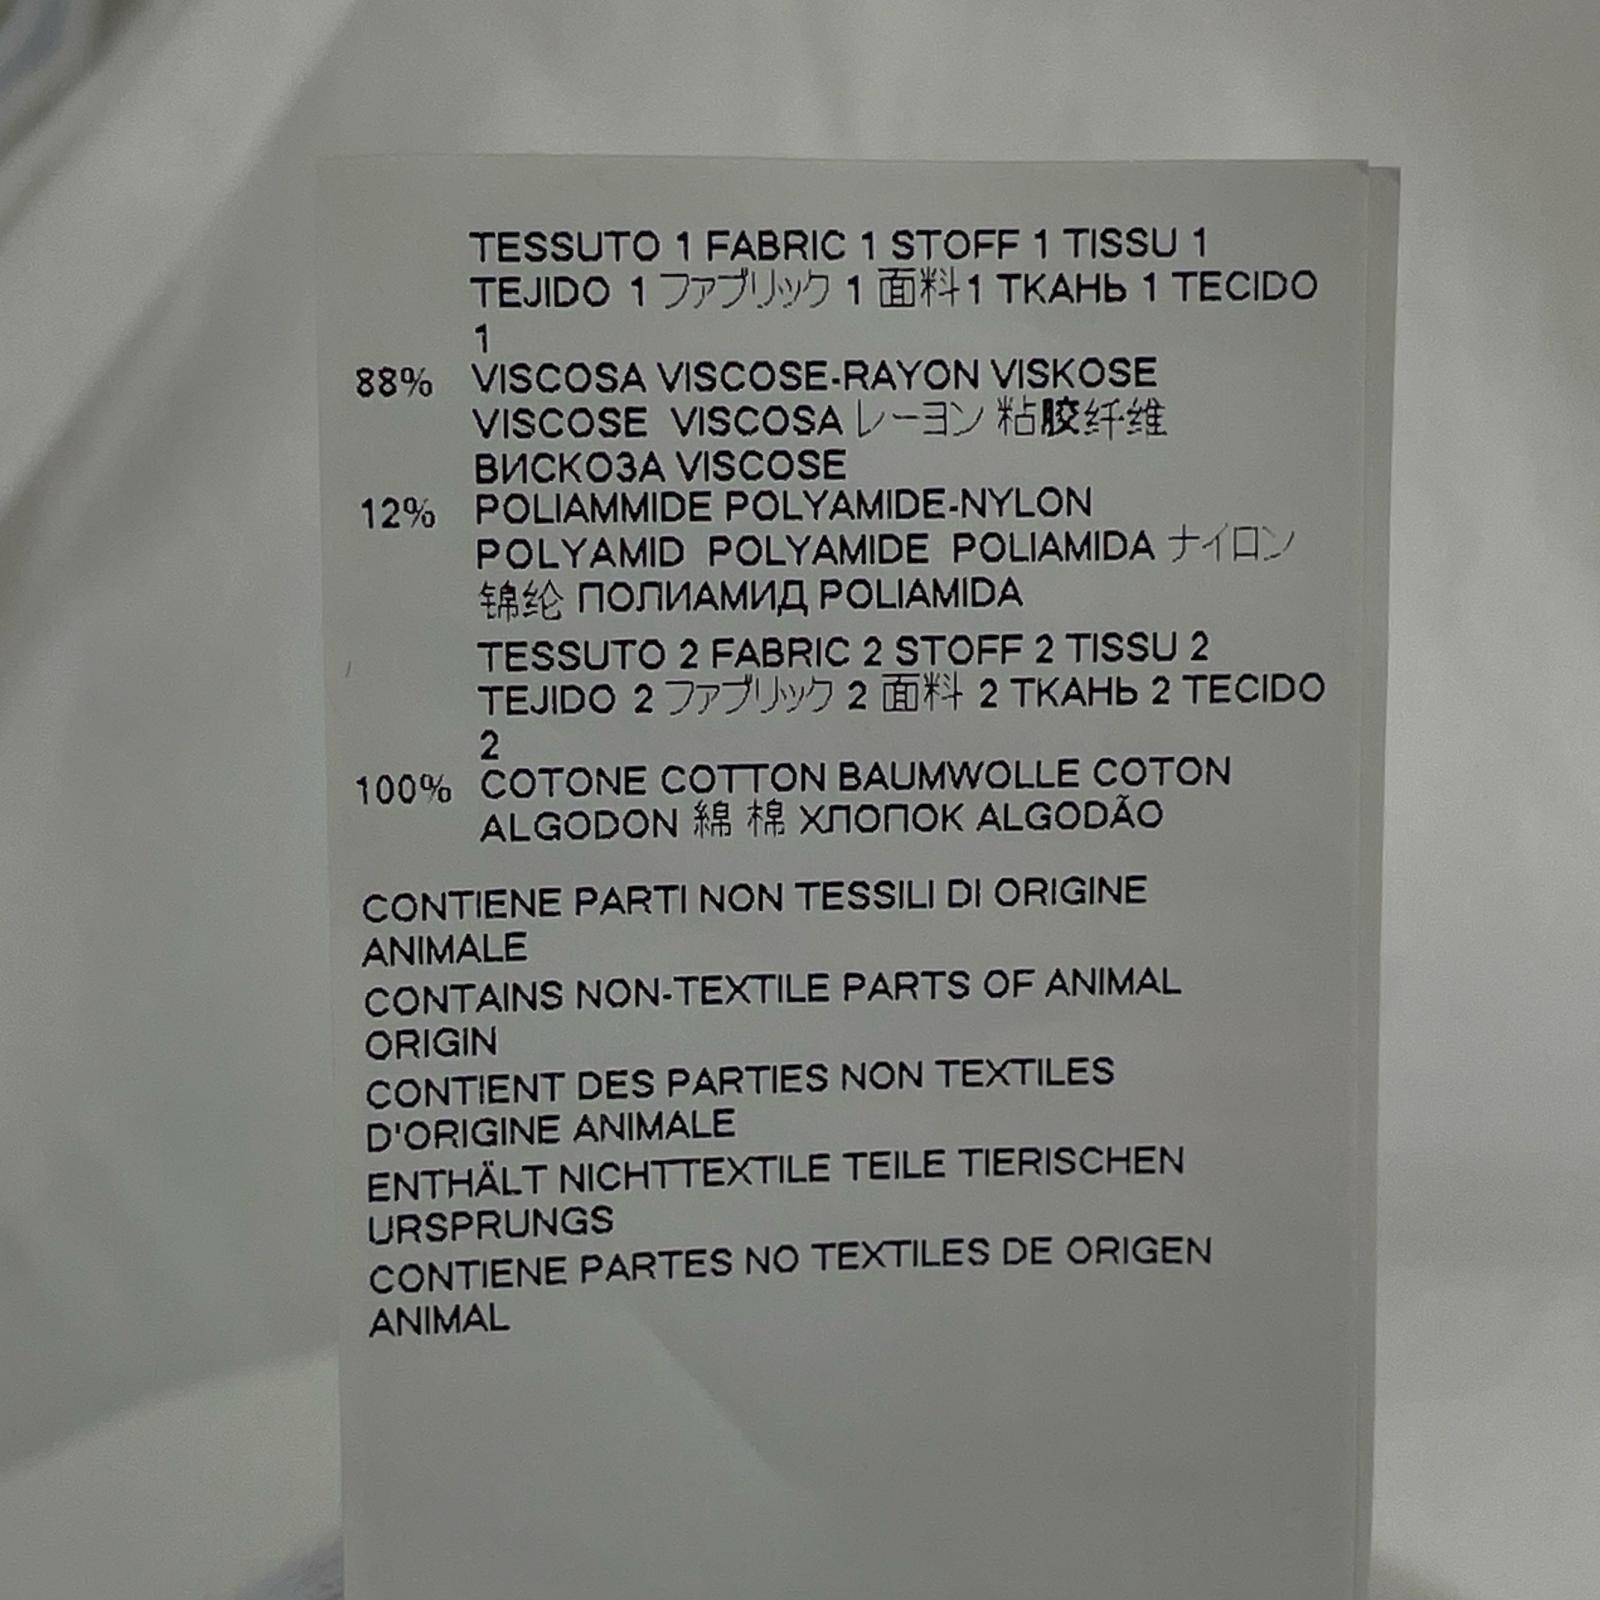 TESSUTO 1 FABRIC 1 STOFF 1 TISSU 1
TEJIDO 1 ファブリック 1 面料 1 ТКАНЬ 1 TECIDO
1
88% VISCOSA VISCOSE-RAYON VISKOSE
VISCOSE VISCOSA レーヨン 粘胶纤维
ВИСКОЗА VISCOSE
12% POLIAMMIDE POLYAMIDE-NYLON
POLYAMID POLYAMIDE POLIAMIDA ナイロン
锦纶 ПОЛИАМИД POLIAMIDA
TESSUTO 2 FABRIC 2 STOFF 2 TISSU 2
TEJIDO 2 ファブリック 2 面料 2 ТКАНЬ 2 TECIDO
2
100% COTONE COTTON BAUMWOLLE COTON
ALGODON 綿 棉 ХЛОПОК ALGODÃO
CONTIENE PARTI NON TESSILI DI ORIGINE
ANIMALE
CONTAINS NON-TEXTILE PARTS OF ANIMAL
ORIGIN
CONTIENT DES PARTIES NON TEXTILES
D'ORIGINE ANIMALE
ENTHÄLT NICHTTEXTILE TEILE TIERISCHEN
URSPRUNGS
CONTIENE PARTES NO TEXTILES DE ORIGEN
ANIMAL